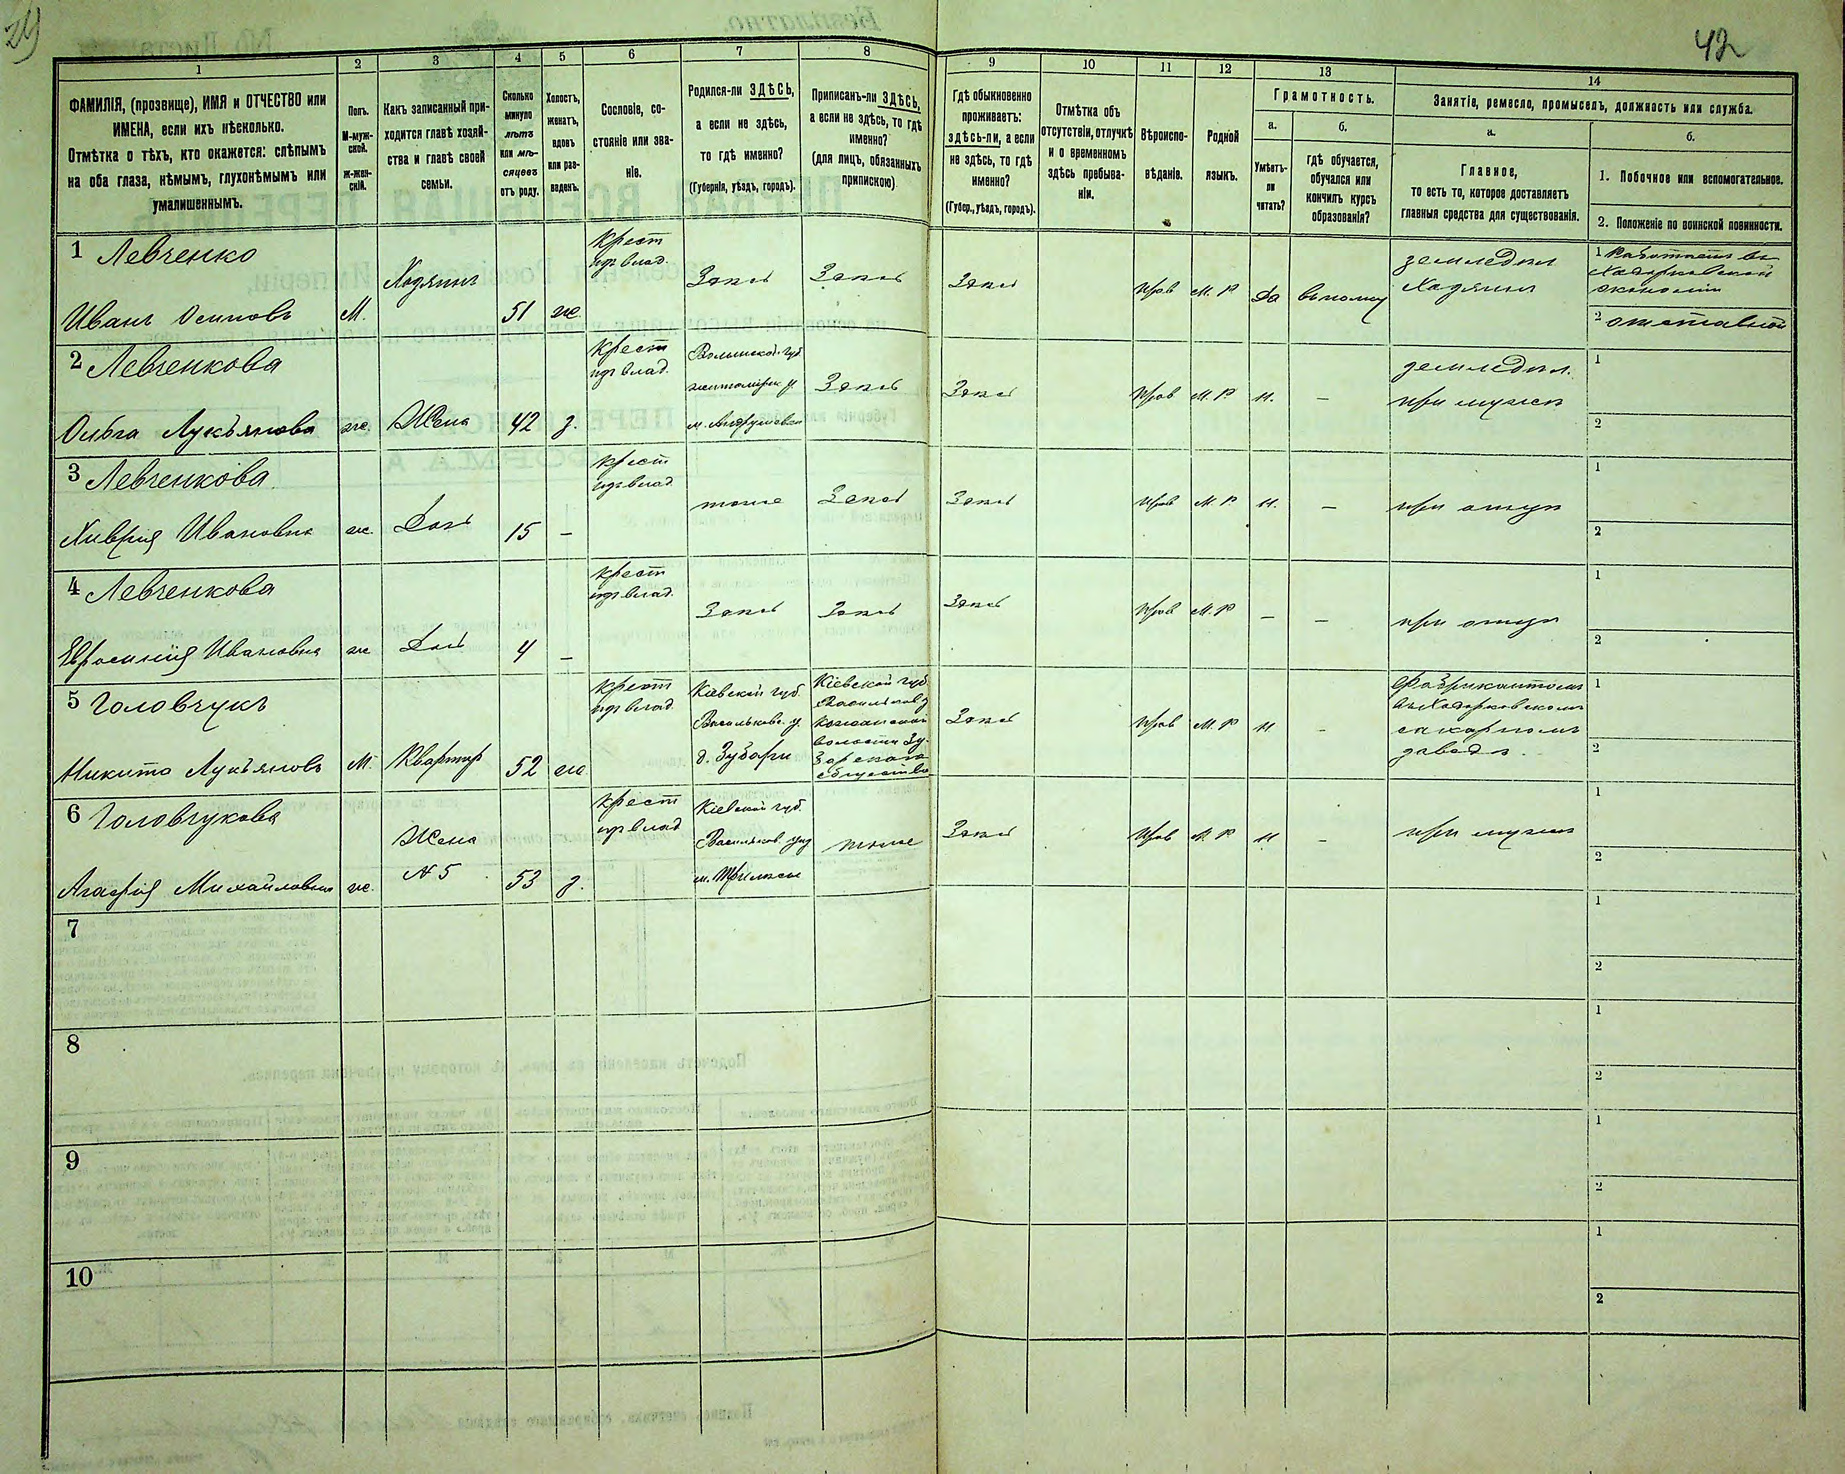 42
1
2
3
4
5
6
7
8
9
10
11
12
13
14
ФАМИЛІЯ, (прозвище), ИМЯ и ОТЧЕСТВО или
ИМЕНА, если ихъ нѣсколько.
Отмѣтка о тѣхъ, кто окажется: слѣпымъ
на оба глаза, нѣмымъ, глухонѣмымъ или
умалишеннымъ.
Полъ.
М-муж-
ской.
Ж-жен-
скій.
Какъ записанный при-
ходится главѣ хозяй-
ства и главѣ своей
семьи.
Сколько
минуло
лѣтъ
или мѣ-
сяцевъ
отъ роду.
Холостъ,
женатъ,
вдовъ
или раз-
веденъ.
Сословіе, со-
стояніе или зва-
ніе.
Родился-ли ЗДѢСЬ,
а если не здѣсь,
то гдѣ именно?
(Губернія, уѣздъ, городъ).
Приписанъ-ли ЗДѢСЬ,
а если не здѣсь, то гдѣ
именно?
(для лицъ, обязанныхъ
припискою)
Гдѣ обыкновенно
проживаетъ:
здѣсь-ли, а если
не здѣсь, то гдѣ
именно?
(Губер., уѣздъ, городъ).
Отмѣтка объ
отсутствіи, отлучкѣ
и о временномъ
здѣсь пребыва-
ніи.
Вѣроиспо-
вѣданіе.
Родной
языкъ.
Грамотность.
а.
б.
Умѣетъ-
ли
читать?
гдѣ обучается,
обучался или
кончилъ курсъ
образованія?
Занятіе, ремесло, промыселъ, должность или служба.
а.
б.
Главное,
то есть то, которое доставляетъ
главныя средства для существованія.
1. Побочное или вспомогательное.
2. Положеніе по воинской повинности.
1 Левченко
Иванъ Осиповъ
М.
Хозяинъ
51
же.
крест
изъ влад.
Здесь
Здесь
Здесь
Прав
М. Р
да
земледел
Хозяинъ
1 Работает въ
Ходорковской
экономіи
2 отставной
2 Левченкова
Ольга Лукъянова
же.
Жена
42
з.
крест
изъ влад.
Волынской губ
житомирск у
Здесь
Здесь
Прав
М. Р
н.
-
земледел.
при мужѣ
1
2
3 Левченкова
Хиврія Ивановна
же.
Дочь
15
-
крест
изъ влад.
тоже
Здесь
Здесь
Прав
М. Р.
н.
-
при отцѣ
1
2
4 Левченкова
Ефросинія Ивановна
же
Дочь
4
-
крест
изъ влад.
Здесь
Здесь
Здесь
Прав
М. Р
-
-
при отцѣ
1
2
5 Головчукъ
Никита Лукъяновъ
М.
Квартир
52
же
крест
изъ влад
Кіевской губ.
Васильковс. у.
д. Зубари
Кіевской губ.
волости Зу-
Здесь
Прав
М. Р
н
-
въ Ходорковскомъ
сахарномъ
заводѣ.
1
2
6 Головчукова
Агафія Михайловна
же.
Жена
№ 5
53
з.
крест
изъ влад
Кіевской губ.
Васильков. уѣзд
м. Трилесы
тоже
Здесь
Прав
М. Р
н
-
при мужѣ
1
2
7
1
2
8
1
2
9
1
2
10
1
2